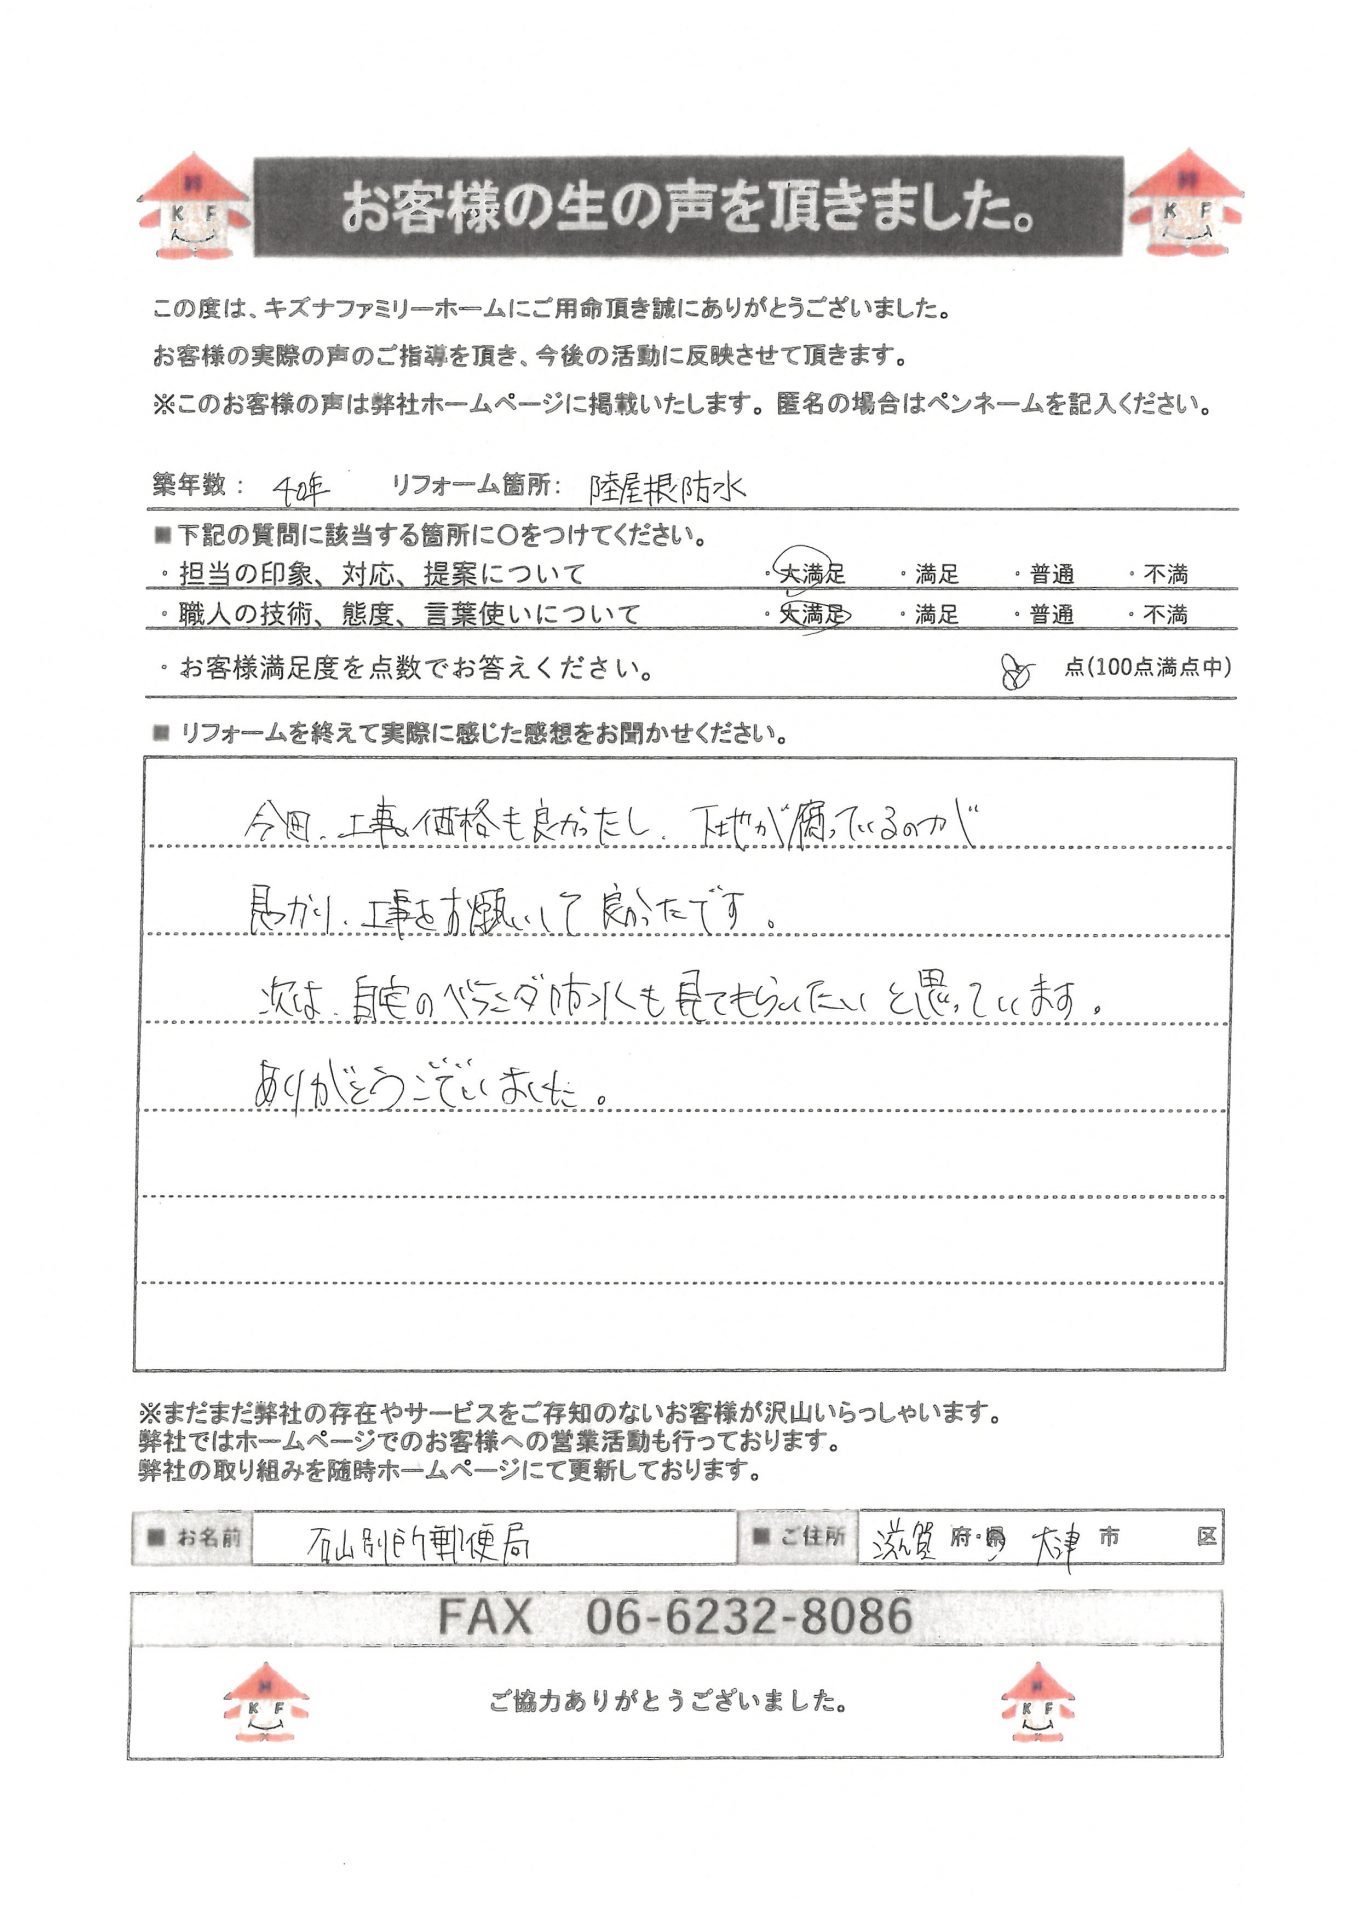 お客様の生の声を頂きました。
K F
K F
この度は、キズナファミリーホームにご用命頂き誠にありがとうございました。
お客様の実際の声のご指導を頂き、今後の活動に反映させて頂きます。
※このお客様の声は弊社ホームページに掲載いたします。匿名の場合はペンネームを記入ください。
築年数： 40年 リフォーム箇所： 陸屋根防水
■下記の質問に該当する箇所に〇をつけてください。
・担当の印象、対応、提案について ・大満足 ・満足 ・普通 ・不満
・職人の技術、態度、言葉使いについて ・大満足 ・満足 ・普通 ・不満
・お客様満足度を点数でお答えください。 点(100点満点中)
■ リフォームを終えて実際に感じた感想をお聞かせください。
今回、工事価格も良かったし、下地が腐っているのが
見つかり、工事をお願いして良かったです。
次は、自宅のベランダ防水も見てもらいたいと思っています。
ありがとうございました。
※まだまだ弊社の存在やサービスをご存知のないお客様が沢山いらっしゃいます。
弊社ではホームページでのお客様への営業活動も行っております。
弊社の取り組みを随時ホームページにて更新しております。
■ お名前 石山別所郵便局 ■ ご住所 滋賀 府・県 大津 市 区
FAX 06-6232-8086
K F
ご協力ありがとうございました。
K F